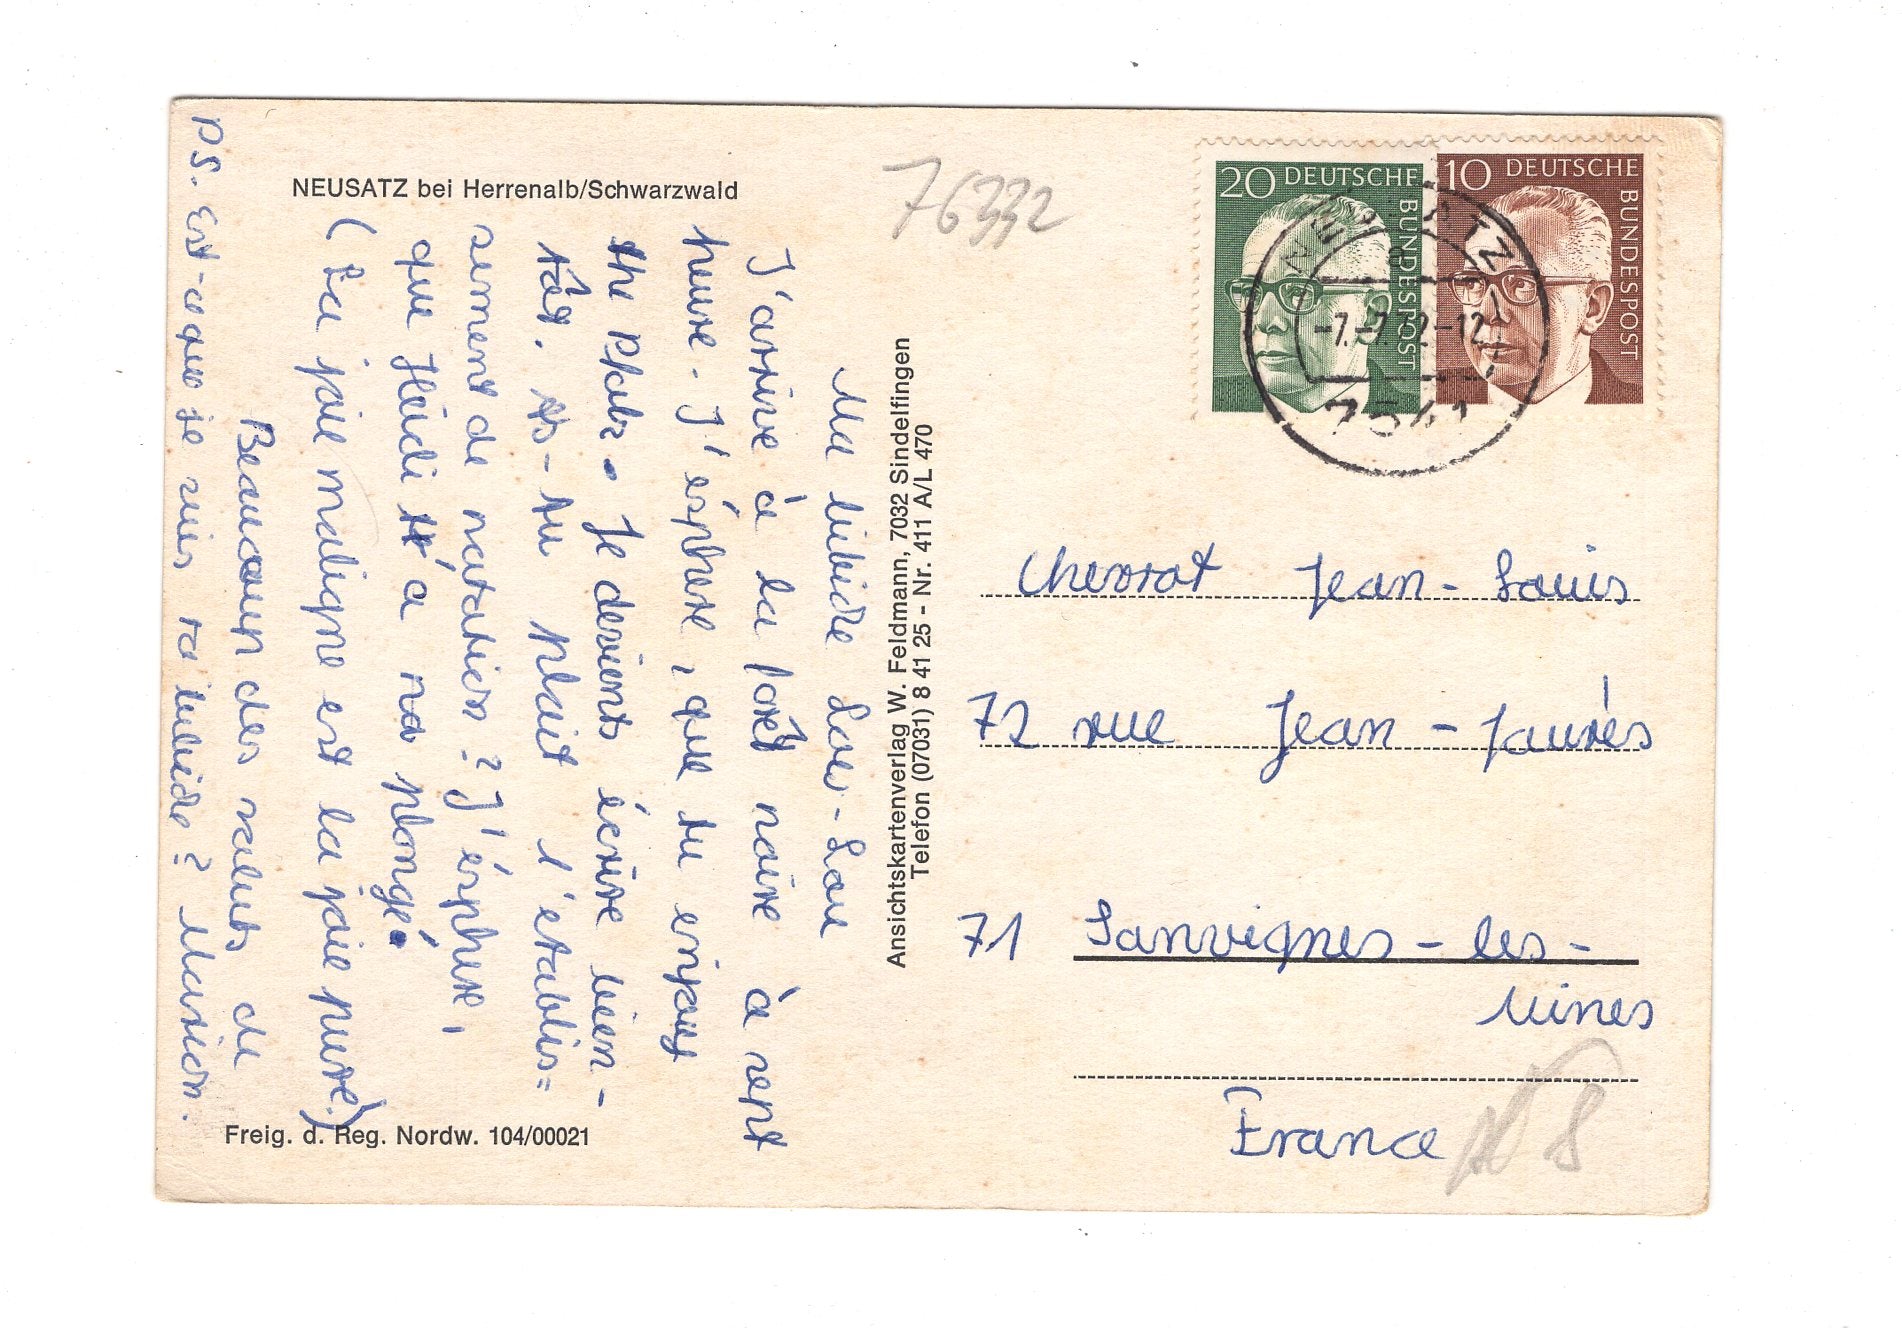 NEUSATZ bei Herrenalb/Schwarzwald
76332
20 DEUTSCHE BUNDESPOST
10 DEUTSCHE BUNDESPOST
NEUSATZ
a
-7.-7.72-12
7541
Ma bibide Lou-Lou
J'arrive à la forêt noire à sept
heure. J'ésphere, que tu enjoy
the Plabz. Je devients écrire bien-
tôt. As-tu plait l'etablis=
sement de natation? J'ésphere,
que Heidi t'a no plongé.
(La joie maligne est la joie pure!)
Beaucoup des saluts de
Marion.
PS. Est-ce que je suis ta bibide?
Ansichtskartenverlag W. Feldmann, 7032 Sindelfingen
Telefon (07031) 8 41 25 - Nr. 411 A/L 470
Chevrot Jean-Louis
72 rue Jean-Jaurès
71 Sanvignes-les-
Mines
France
Freig. d. Reg. Nordw. 104/00021